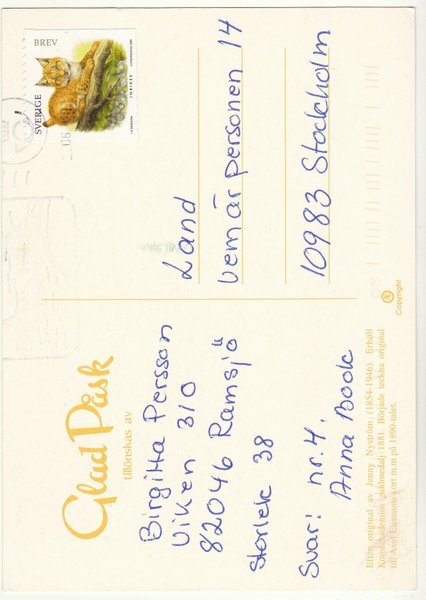 Glad Påsk
tillönskas av
Birgitta Persson
Viken 310
82046 Ramsjö
Storlek 38
Svar: nr. 4.
Anna Book
Efter original av Jenny Nyström (1854-1946). Erhöll
Konstakademins guldmedalj 1881. Började teckna original
till Axel Eliassons kort m.m på 1890-talet.
Copyright
BREV
SVERIGE
INRIKES
Land
Vem är personen 14
10983 Stockholm